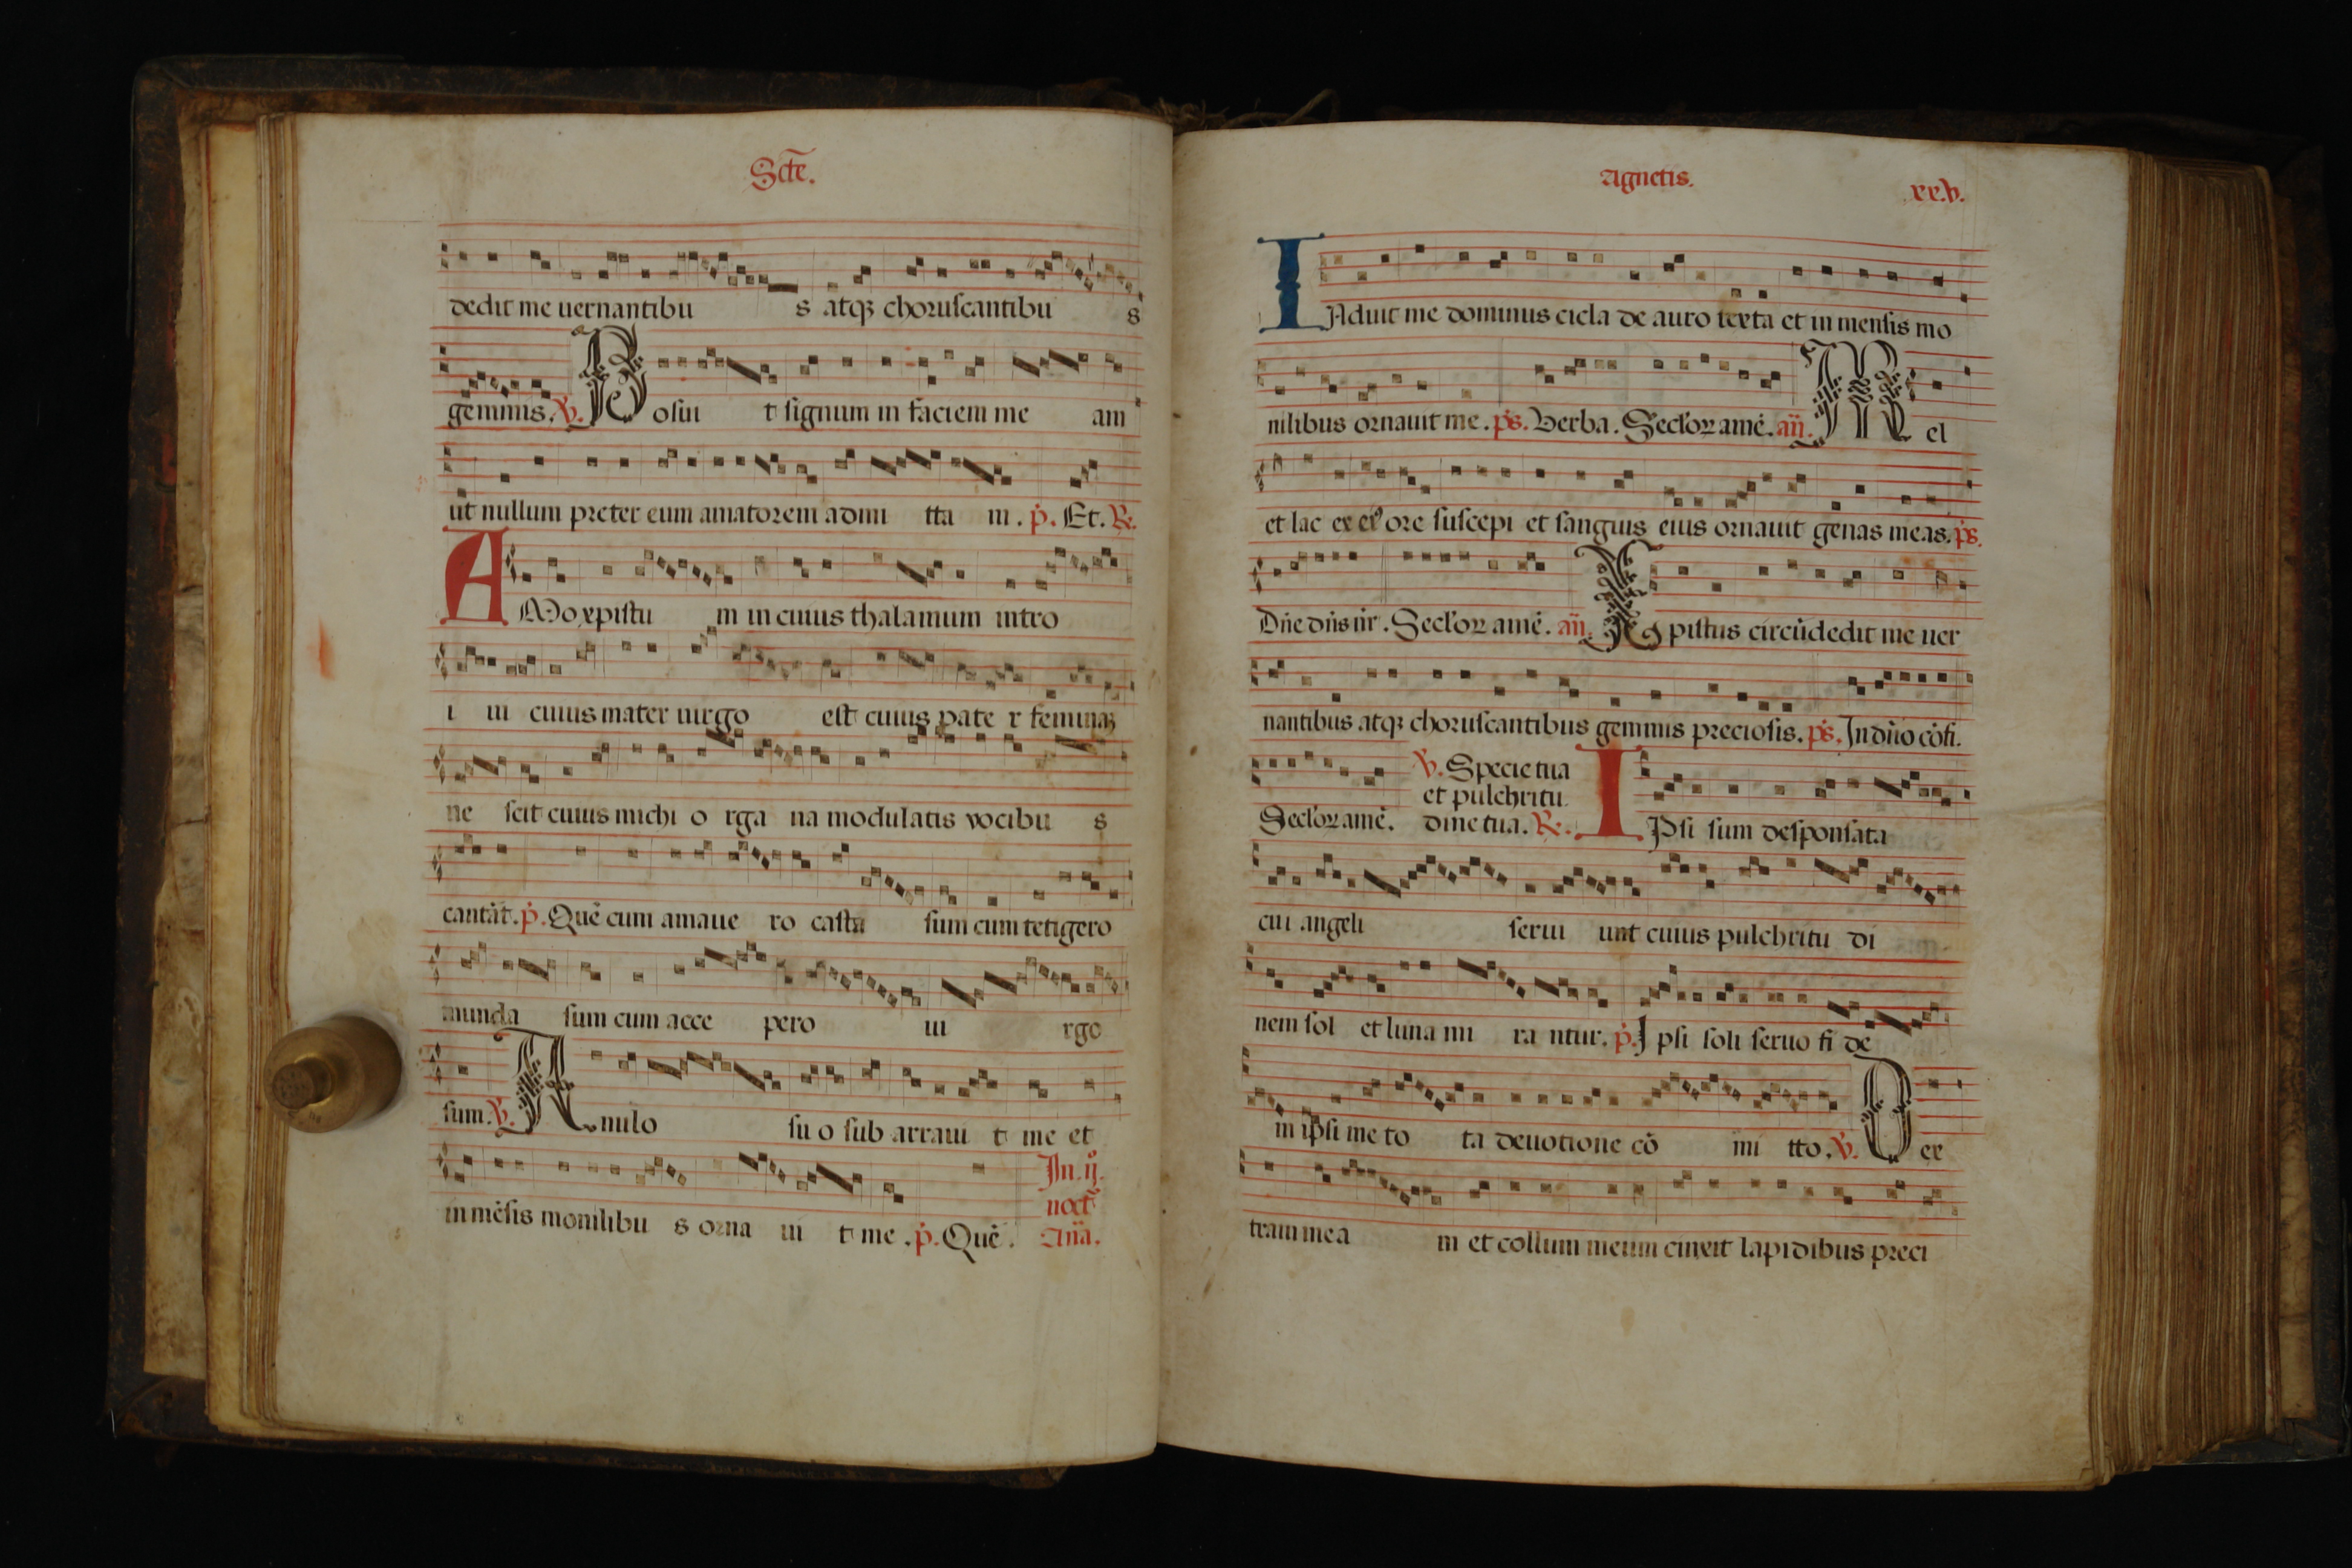 Scte.
dedit me uernantibu s atqꝫ choruscantibu s
gemmis. ℣. Posui t signum in faciem me am
ut nullum preter eum amatorem admi tta m. p̄. Et. ℟.
AMo xpistu m in cuius thalamum intro
i ui cuius mater uirgo est cuius pate r feminaꝫ
ne scit cuius michi o rga na modulatis vocibu s
cantāt. p̄. Quē cum amaue ro casta sum cum tetigero
munda sum cum acce pero ui rgo
sum. ℣. Anulo su o sub arraui t me et
in mēsis monilibu s orna ui t me. p̄. Quē. In. ij.
noct̄
Añа.
Agnetis. xx.v.
INduit me dominus cicla de auro texta et in mensis mo
nilibus ornauit me. ps. Verba. Seclꝰoꝝ amē. añ. Mel
et lac ex eiꝰ ore suscepi et sanguis eius ornauit genas meas. ps.
Dñe dñs nr̄. Secl'oꝝ amē. añ. Xpistus circūdedit me uer
nantibus atqꝫ choruscantibus gemmis preciosis. ps. In dn̄o cōfi.
Secl'oꝝ amē. ℣. Specie tua
et pulchritu
dine tua. ℟. IPsi sum desponsata
cui angeli serui unt cuius pulchritu di
nem sol et luna mi ra ntur. p̄. Ipsi soli seruo fi de
m ipsi me to ta deuotione cō mi tto. ℣. Dex
tram mea m et collum meum cinxit lapidibus preci